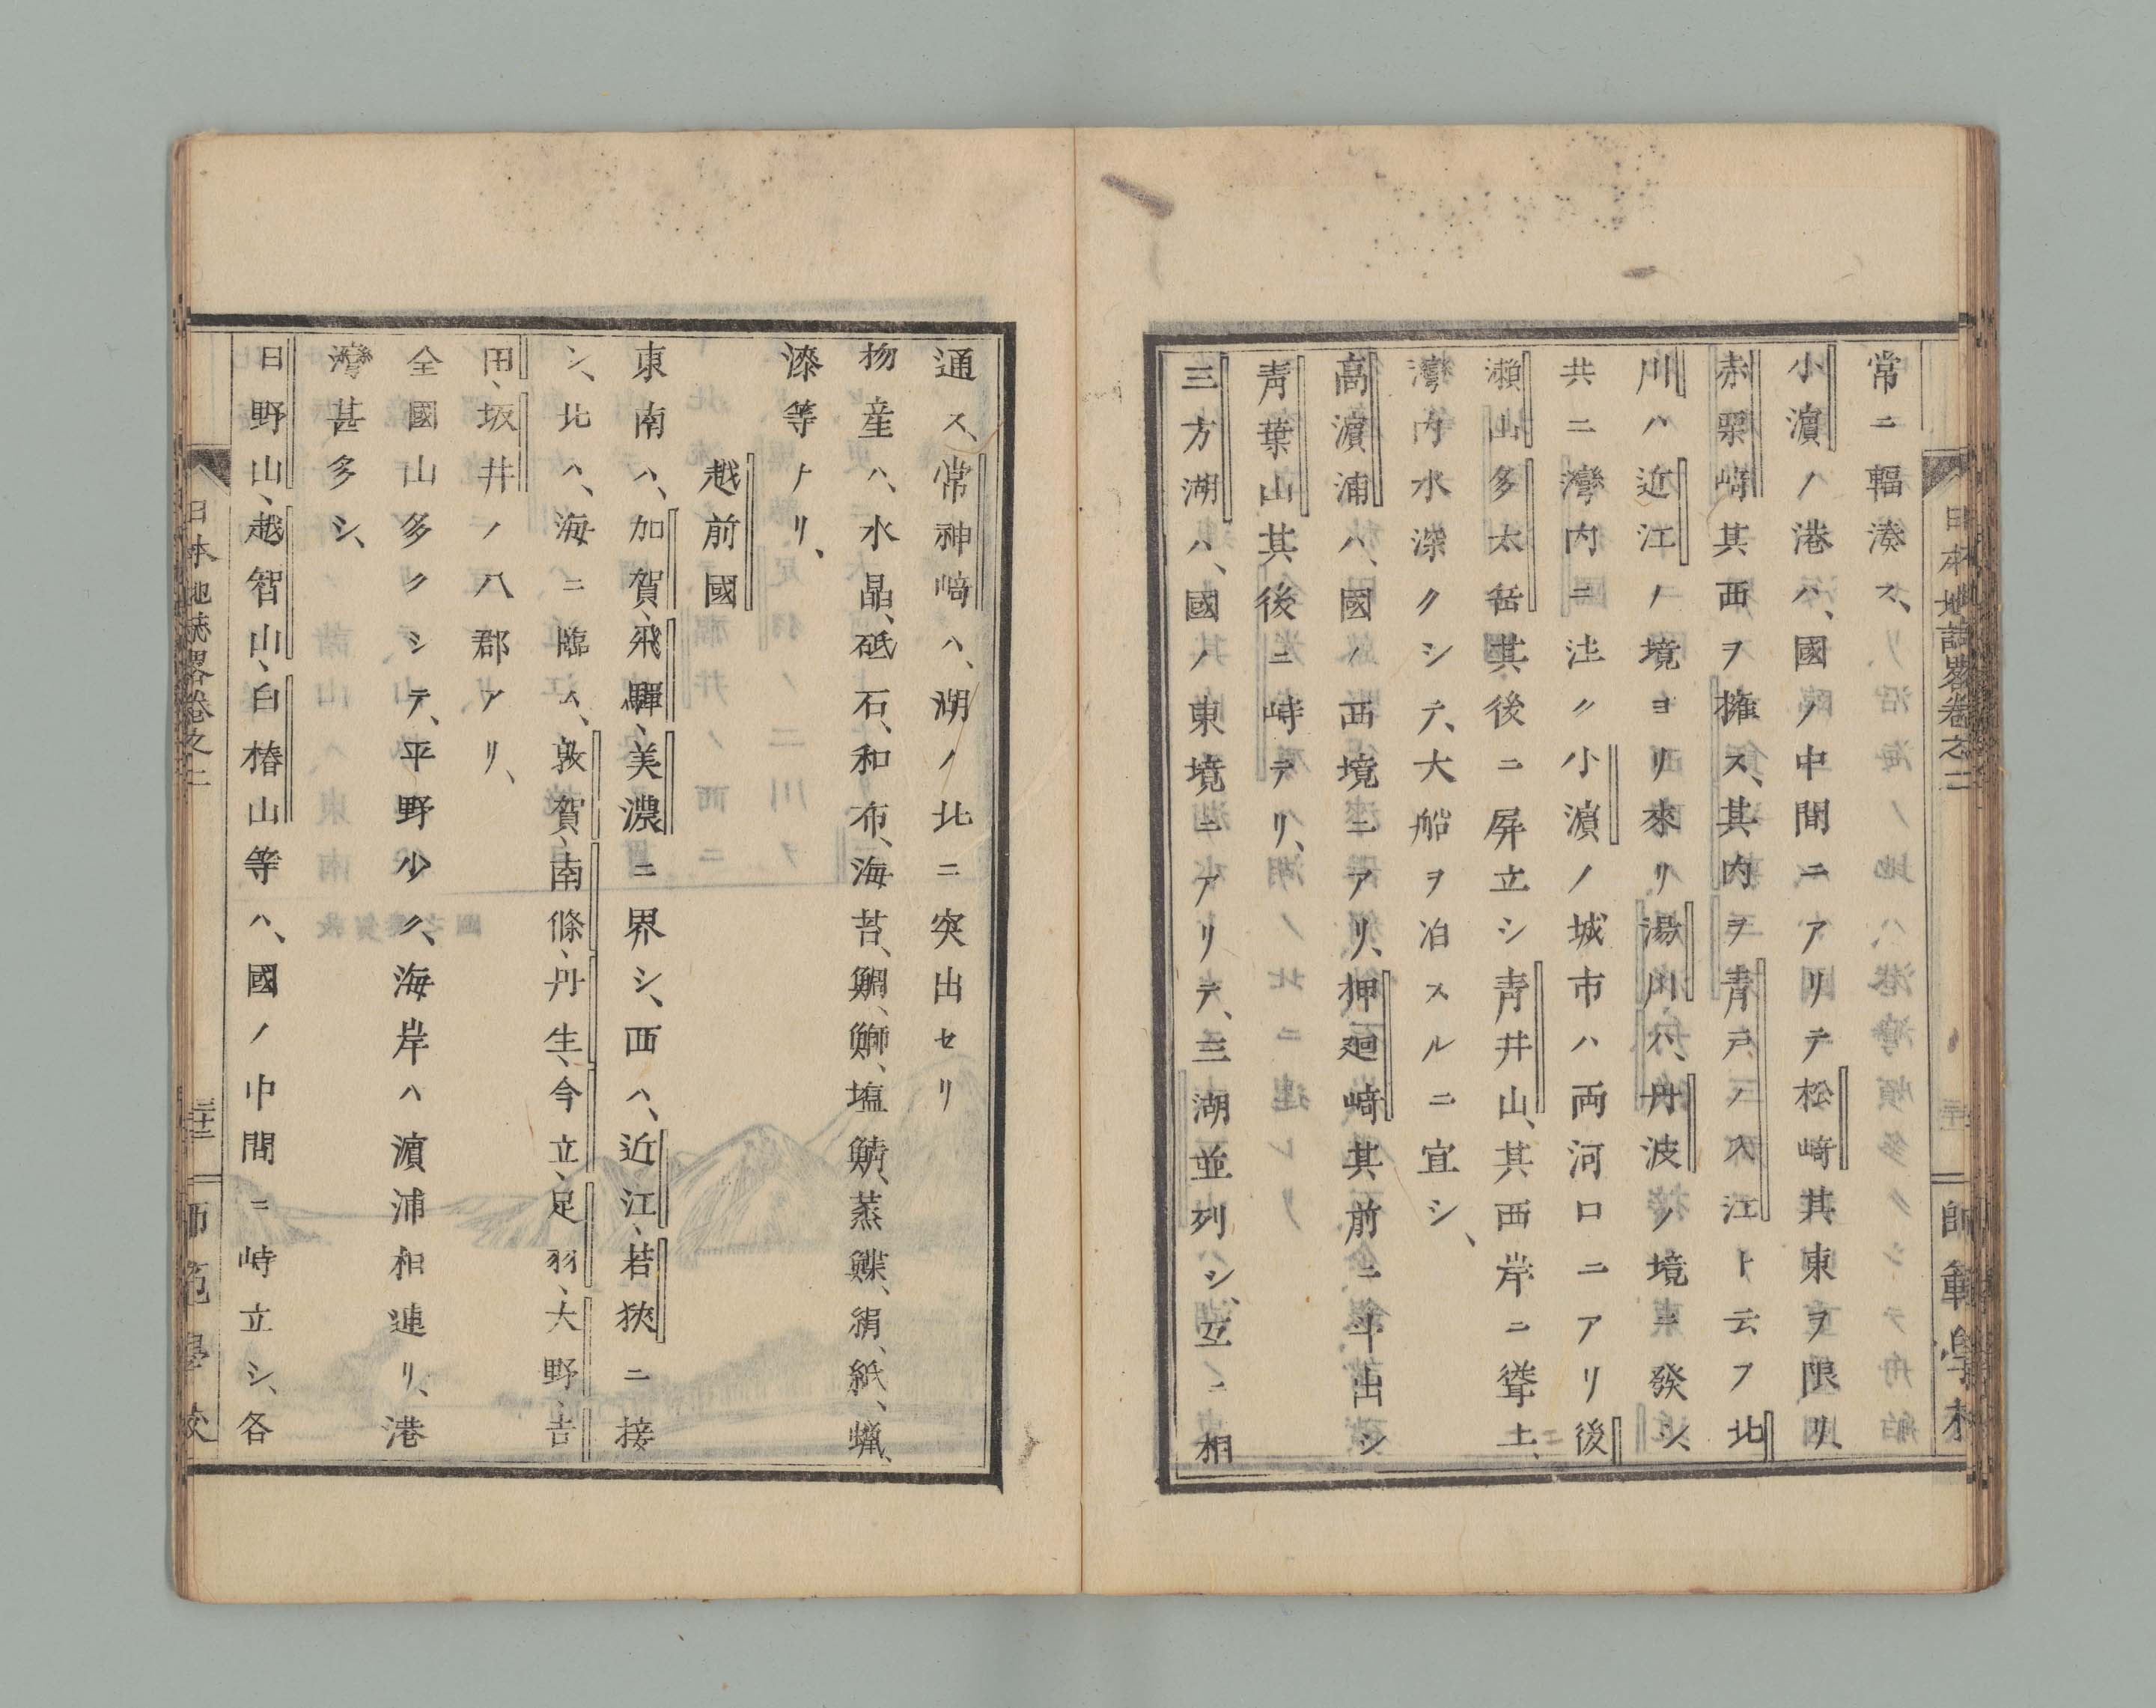 常ニ輻湊ス、
小濵ノ港ハ、國ノ中間ニアリテ松﨑其東ヲ限リ、
赤栗﨑其西ヲ擁ス、其内ヲ青戸ノ入江ト云フ北
川ハ近江ノ境ヨリ來リ湯川ハ、丹波ノ境ニ發シ、
共ニ灣内ニ注グ小濵ノ城市ハ両河口ニアリ後
瀬山多太岳其後ニ屏立シ青井山、其西岸ニ聳土、
灣内水深クシテ、大船ヲ泊スルニ宜シ、
高濵浦ハ、國ノ西境ニアリ、押廻﨑其前ニ斗出シ
青葉山其後ニ峙テリ、
三方湖ハ、國ノ東境ニアリテ、三湖並列シ、互ニ相
日本地誌畧卷之二
師範學校
通ス、常神﨑ハ、湖ノ北ニ突出セリ
物産ハ、水晶、砥石、和布、海苔、鯛、鰤、塩鯖、蒸鰈、絹、紙、蝋、
漆等ナリ、
越前國
東南ハ、加賀、飛驒、美濃ニ界シ、西ハ、近江、若狹ニ接
シ、北ハ、海ニ臨ム、敦賀、南條、丹生、今立、足羽、大野、吉
田、坂井ノ八郡アリ、
全國山多クシテ、平野少ク、海岸ハ濵浦相連リ、港
灣甚多シ、
日野山、越智山、白椿山等ハ、國ノ中間ニ峙立シ、各
日本地誌畧卷之二
師範學校